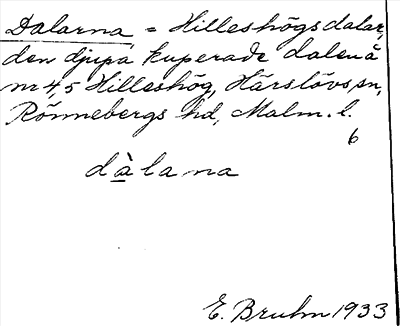 Dalarna = Hilleshögsdalar,
den djupa kuperade dalen å
nr 4,5 Hilleshög, Härslövs sn,
Rönnebergs hd, Malm. l.
6
dàlana
E. Bruhn 1933